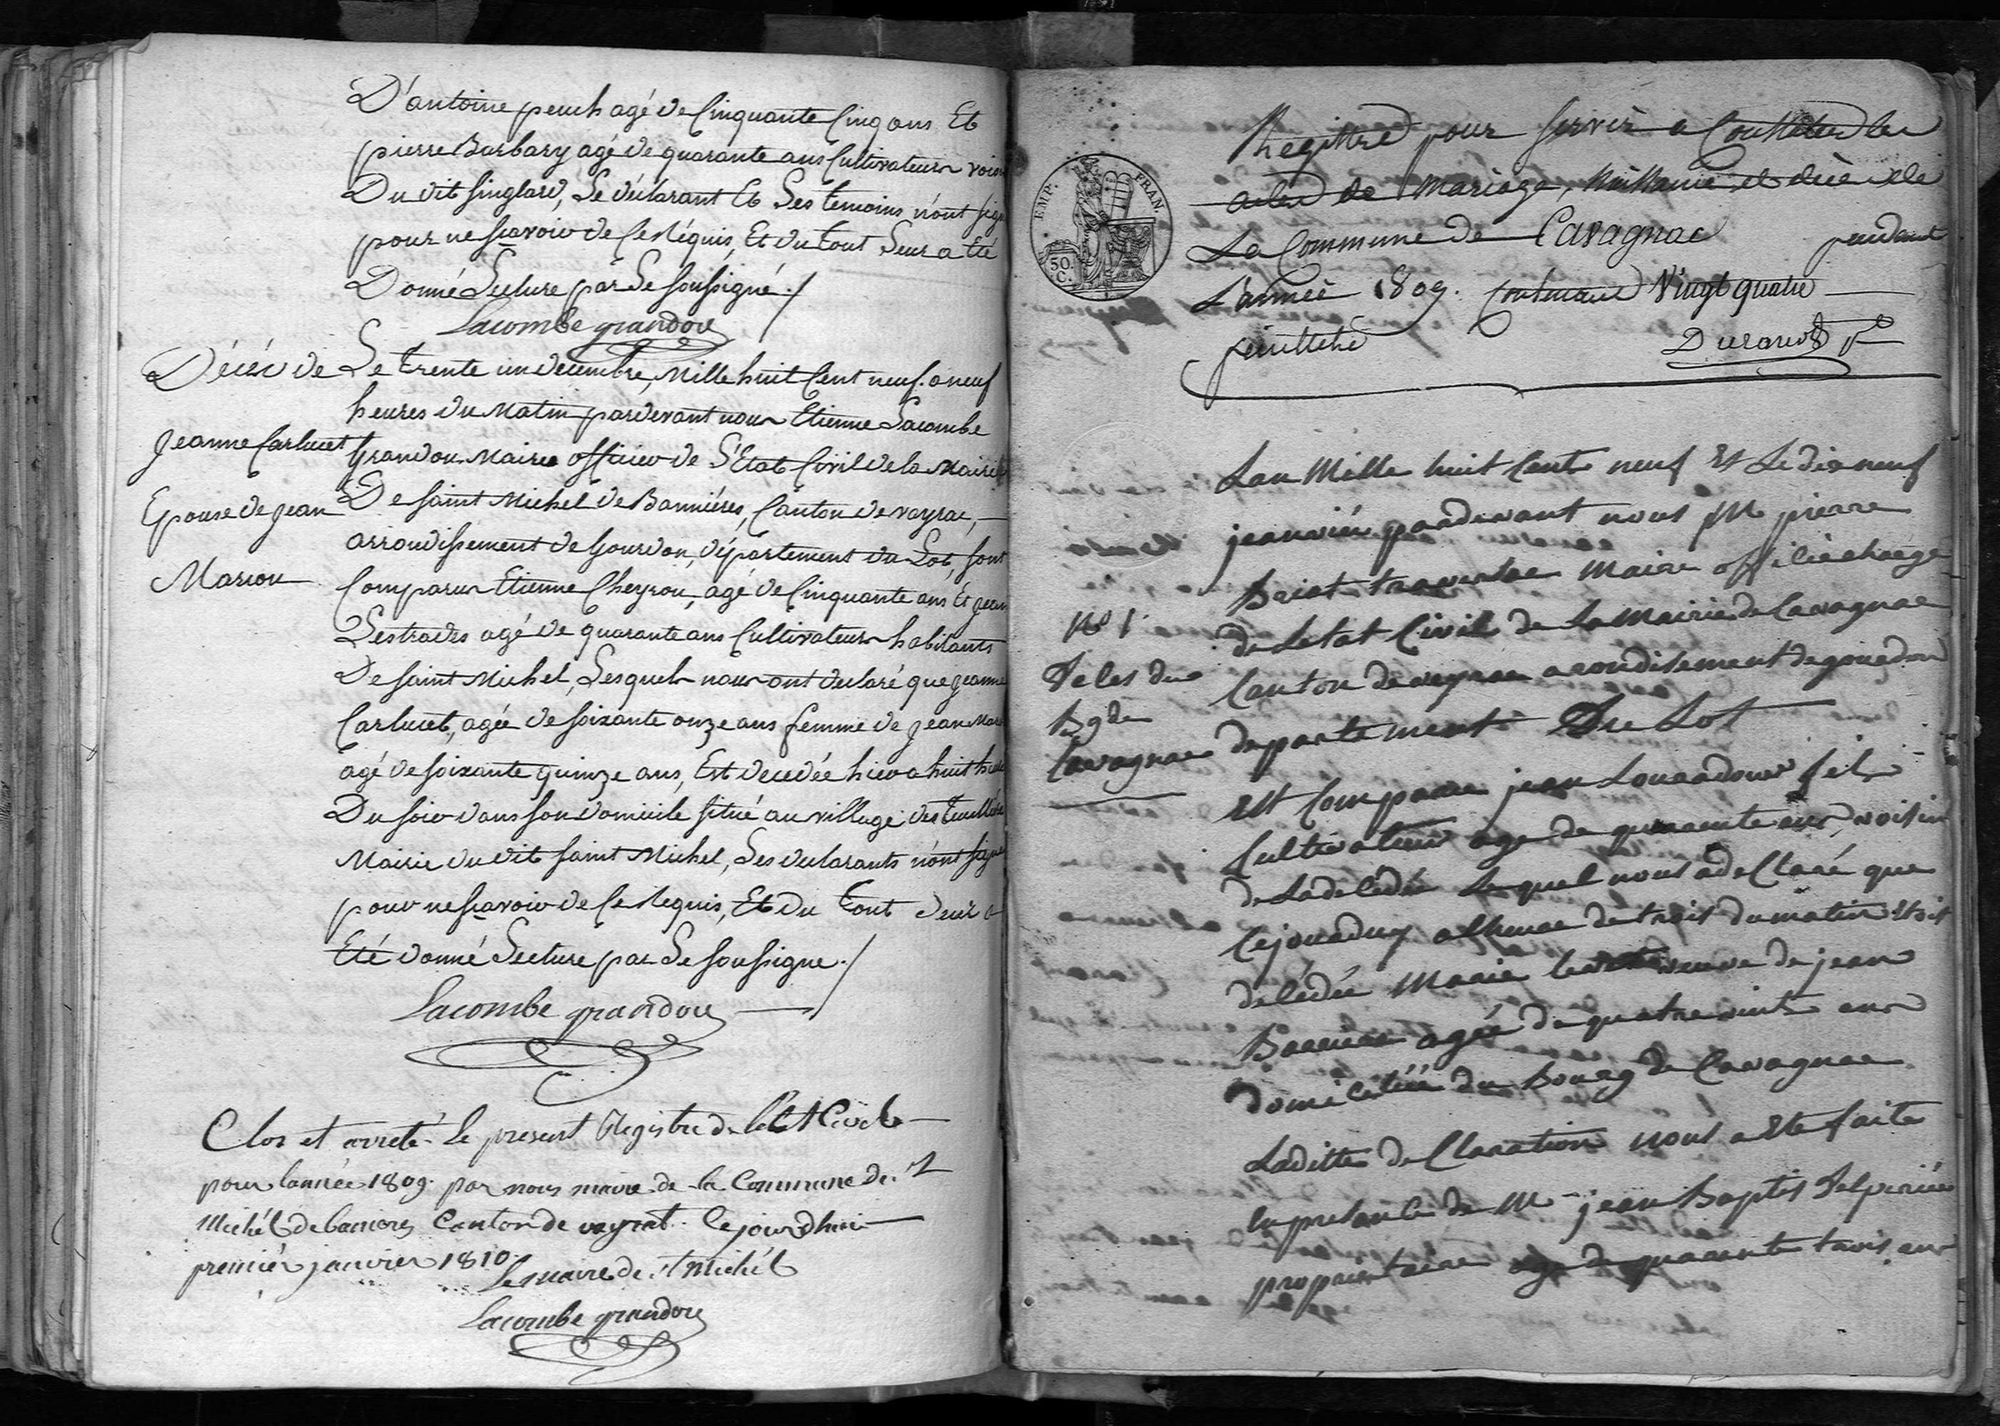 D'antoine peuch agé de Cinquante Cinq ans Et
pierre Barbary agé de quarante ans Cultivateurs voisins
Du dit Singlard, Le déclarant Et Les temoins n'ont signé
pour ne sçavoir de Ce Réquis, Et du tout Leur a été
Donné Lecture par Le soussigné ./
Lacombe grandou
Décés de
Jeanne Carlucet
Epouse de Jean
Marcou
Le trente un décembre, Mille huit Cent neuf. a neuf
heures du Matin pardevant nous Etienne Lacombe
Grandou Maire officier de L'Etat Civil de la Mairie
De Saint Michel de Bannières, Canton de vayrac,
arrondissement de Gourdon, département du Lot, sont
Comparus Etienne Cheyrou, agé de Cinquante ans Et Jean
Lestrades agé de quarante ans Cultivateurs habitants
De Saint Michel, Lesquels nous ont déclaré que Jeanne
Carlucet, agée de soixante onze ans femme de Jean Mar
agé de soixante quinze ans, Est decedée hier a huit h
Du soir dans son domicile situé au village des
Mairie du dit Saint Michel, Les déclarants n'ont signé
pour ne sçavoir de Ce Requis, Et Du tout Leur a
Eté donné Lecture par Le soussigne ./
Lacombe grandou
Clos et arreté Le present Registre de letat Civil
pour lannée 1809. par nous maire de la Commune de St
Michél de banieres Canton de vayrat. Cejourdhui
premiér janvier 1810.
Le maire de St Michél
Lacombe grandou
EMP. FRAN.
50. C.
Registre pour servir a les
actes de Mariage, Naissance, et décès de
La Commune de Cavagnac pendant
L'année 1809. Contenant Vingt quatre
feuillets
Durand
N° 1
du
Bg de
Cavagnac
Lan Mille huit Cent neuf Et Le dix neuf
jeanvier pardevant nous Mr pierre
Briat maire officié charge
de Letat Civil de La Mairie de Cavagnac
Canton de veyrac arondisement de gourdon
departement Du Lot
Est Comparu jean Louradour fils
Cultivateur age de quarante ans, voisin
de La décédée Lequel nous a declaré que
Cejourduy a lheure de trois du matin Etoit
décédée Marie veuve de jean
Barriere agée de quatre vint ans
domiciliée du Bourg de Cavagnac
Laditte declaration nous a Ete faite
En presance de Mr jean Baptis Delperiée
proprietaire age de quarente trois ans